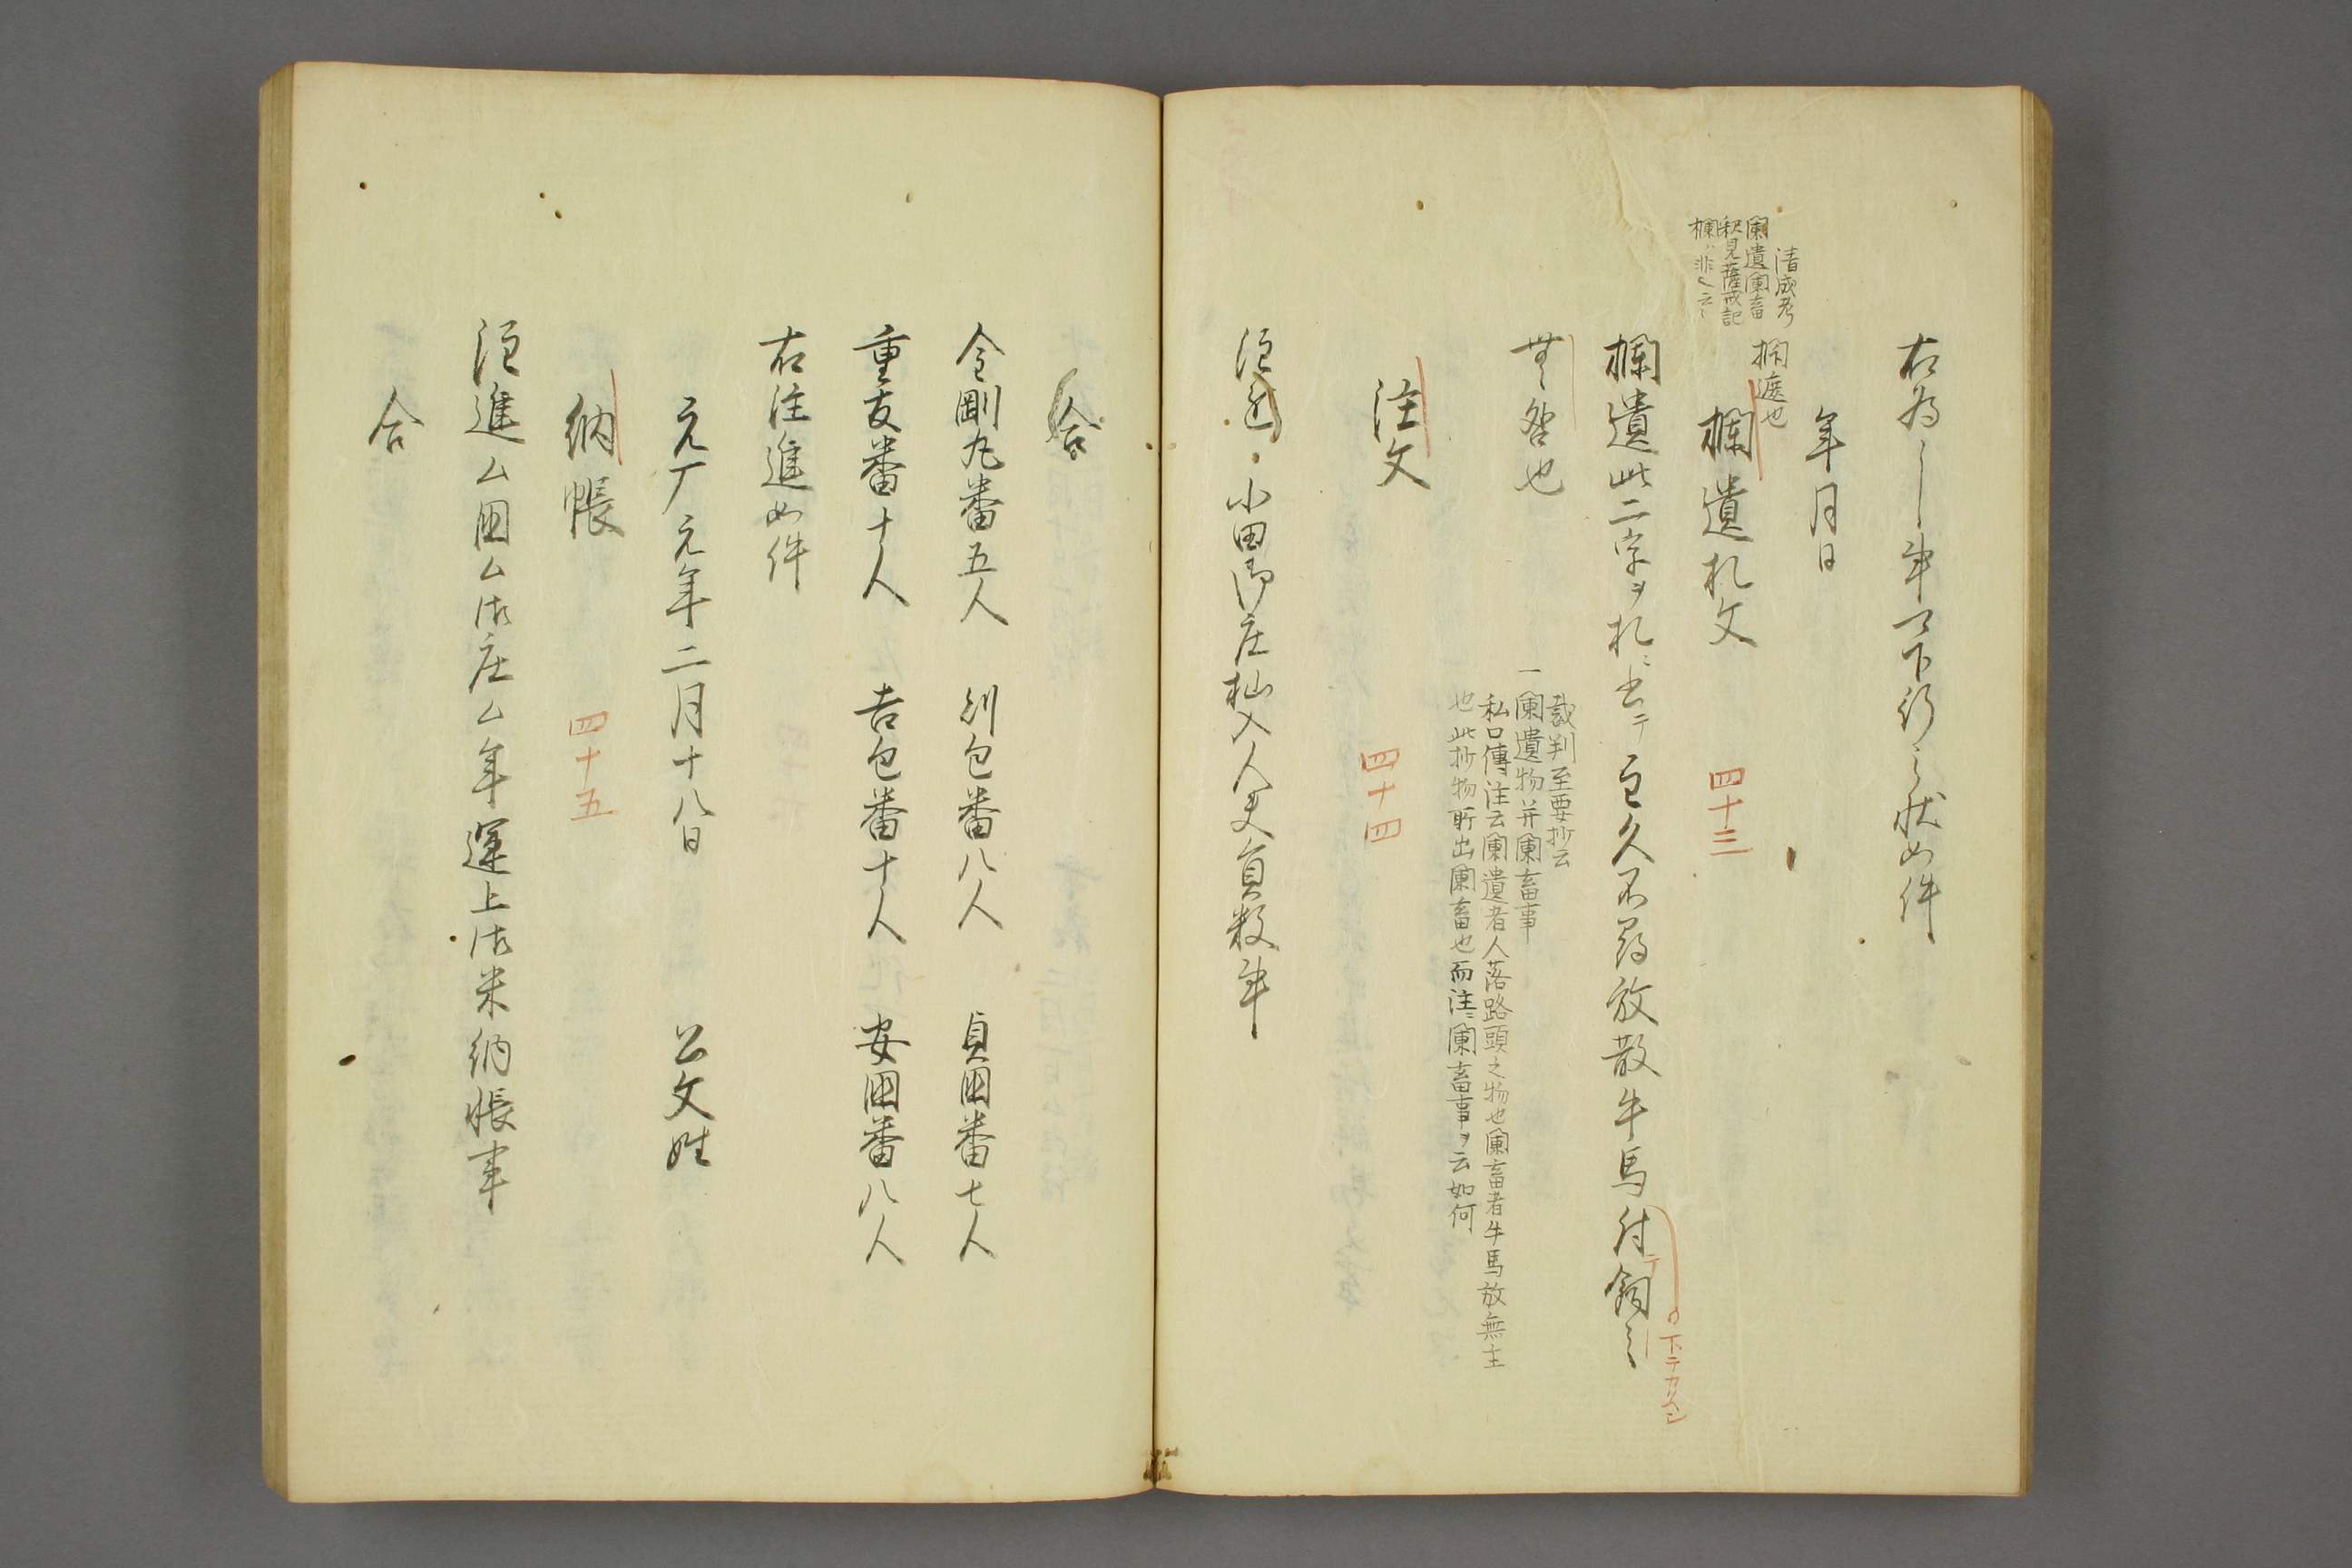 右為〻事可下行之状如件
年月日
清成考
闌遺闌畜
釈見薩戒記
欄ハ非也云〻
欄遮也
欄遺札文 四十三
欄遺此二字ヲ札ニ書テ主久不尋放散牛馬付飼之
ノ下テカリヘシ
無咎也
裁判至要抄云
一闌遺物并闌畜事
私口傳注云闌遺者人落路頭之物也闌畜者牛馬放無主
也此抄物所出闌畜也而注ニ闌畜事ヲ云如何
注文 四十四
注進 小田御庄杣入人夫員数事
合
金剛丸番五人 則包番八人 貞国番七人
重友番十人 吉包番十人 安国番八人
右注進如件
元厂元年二月十八日 公文姓
納帳 四十五
注進ム国ム御庄ム年運上御米納帳事
合